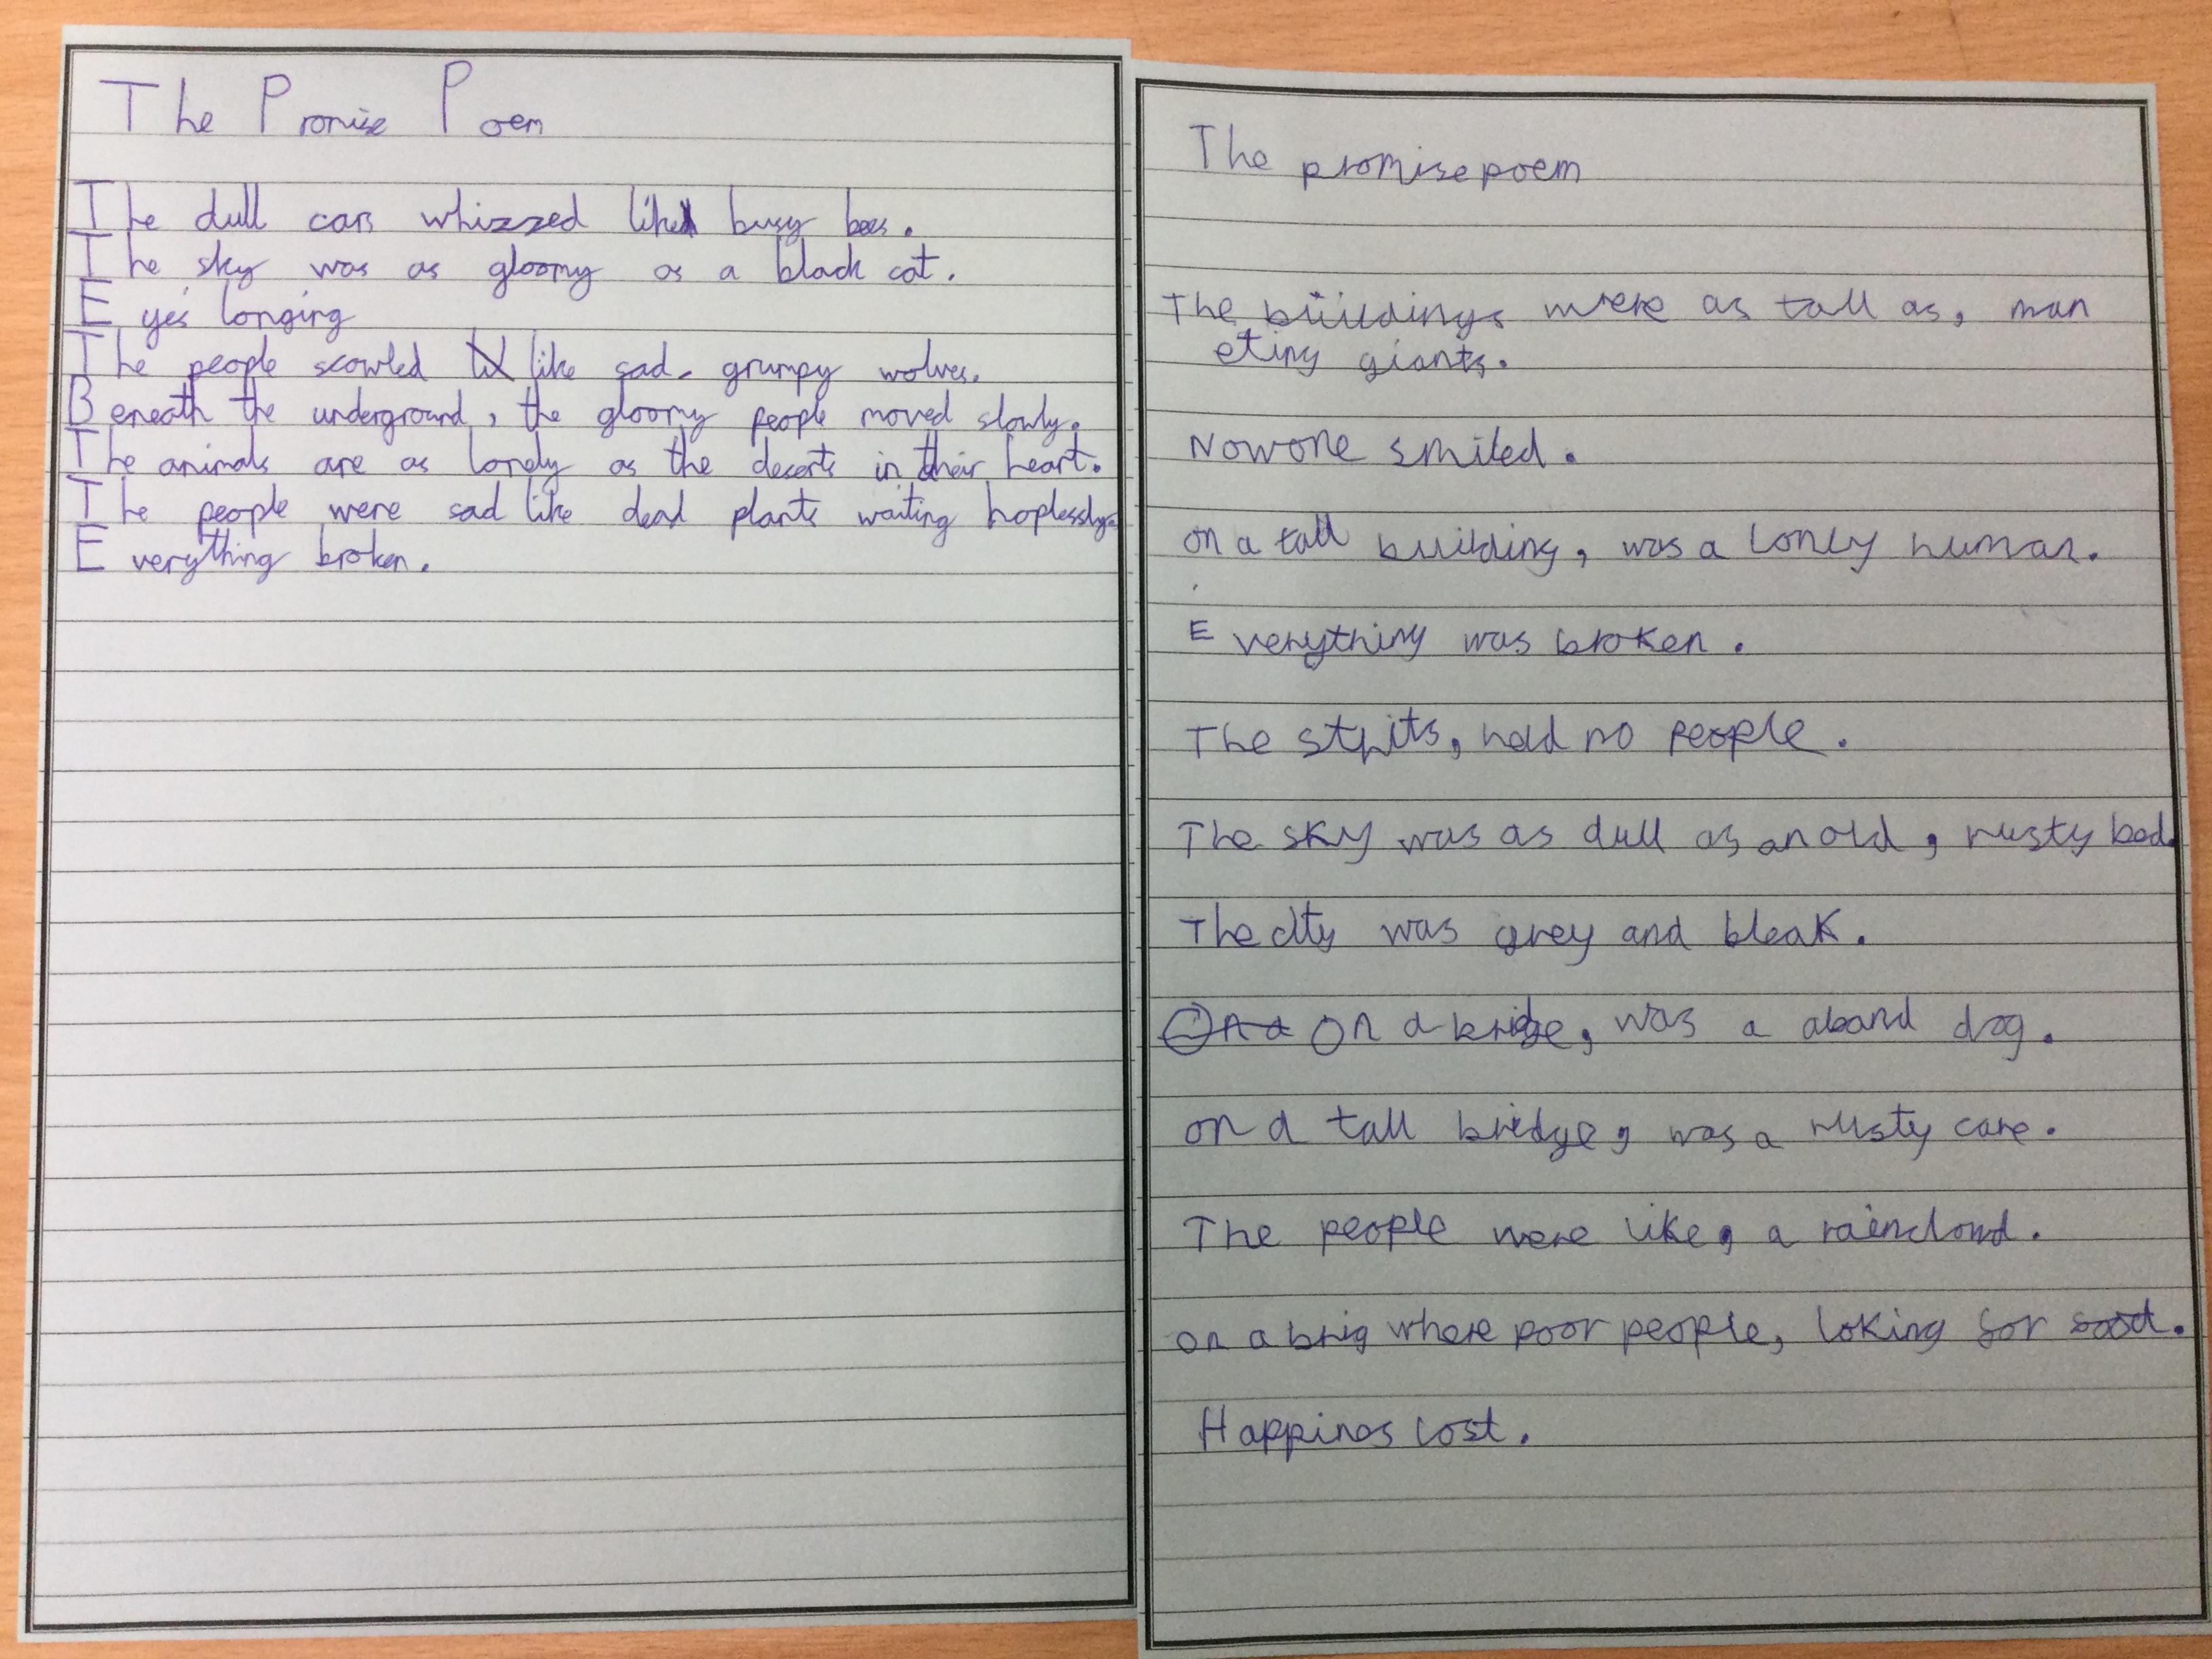 The Promise Poem
The dull cars whizzed like busy bees.
The sky was as gloomy as a black cat.
Eyes longing
The people scowled like sad, grumpy wolves.
Beneath the underground, the gloomy people moved slowly.
The animals are as lonely as the deserts in their heart.
The people were sad like dead plants waiting hoplessly.
Everything broken.
The promise poem
The buildings were as tall as, man
eting giants.
Nowone smiled.
on a tall building, was a lonly human.
Everything was broken.
The strits, had no people.
The sky was as dull as an old, rusty bed.
The city was grey and bleak.
On a bridge, was a aband dog.
on a tall bridge, was a rusty care.
The people were like, a raincloud.
on a brig where poor people, loking for food.
Happines lost.